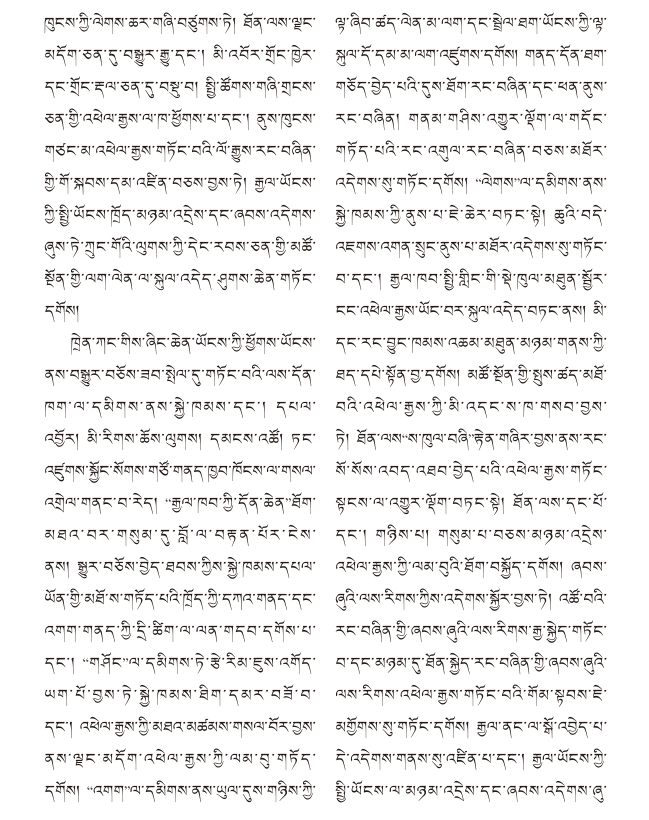 ཁུངས་ཀྱི་ལེགས་ཆར་གཞི་བཙུགས་ཏེ། ཐོན་ལས་ལྗང་
མདོག་ཅན་དུ་བསྒྱུར་རྒྱུ་དང་། མི་འབོར་གྲོང་ཁྱེར་
དང་གྲོང་རྡལ་ཅན་དུ་བསྡུ་བ། སྤྱི་ཚོགས་གཞི་གྲངས་
ཅན་གྱི་འཕེལ་རྒྱས་ལ་ཁ་ཕྱོགས་པ་དང་། ནུས་ཁུངས་
གཙང་མ་འཕེལ་རྒྱས་གཏོང་བའི་ལོ་རྒྱུས་རང་བཞིན་
གྱི་གོ་སྐབས་དམ་འཛིན་བཅས་བྱས་ཏེ། རྒྱལ་ཡོངས་
ཀྱི་སྤྱི་ཡོངས་ཁྲོད་མཉམ་འདྲེས་དང་ཞབས་འདེགས་
ཞུས་ཏེ་ཀྲུང་གོའི་ལུགས་ཀྱི་དེང་རབས་ཅན་གྱི་མཚོ་
སྔོན་གྱི་ལག་ལེན་ལ་སྐུལ་འདེད་ཤུགས་ཆེན་གཏོང་
དགོས།
ཁྲེན་ཀང་གིས་ཞིང་ཆེན་ཡོངས་ཀྱི་ཕྱོགས་ཡོངས་
ནས་བསྒྱུར་བཅོས་ཟབ་སྤེལ་དུ་གཏོང་བའི་ལས་དོན་
ཁག་ལ་དམིགས་ནས་སྐྱེ་ཁམས་དང་། དཔལ་
འབྱོར། མི་རིགས་ཆོས་ལུགས། དམངས་འཚོ། ཏང་
འཛུགས་སྐྱོང་སོགས་གཙོ་གནད་ཁྱབ་ཁོངས་ལ་གསལ་
འགྲེལ་གནང་བ་རེད། “རྒྱལ་ཁབ་ཀྱི་དོན་ཆེན”ཐོག་
མཐའ་བར་གསུམ་དུ་བློ་ལ་བརྟན་པོར་ངེས་
ནས། སྒྱུར་བཅོས་བྱེད་ཐབས་ཀྱིས་སྐྱེ་ཁམས་དཔལ་
ཡོན་གྱི་མཐོ་ས་གཏོད་པའི་ཁྲོད་ཀྱི་དཀའ་གནད་དང་
འགག་གནད་ཀྱི་དྲི་ཚིག་ལ་ལན་གདབ་དགོས་པ་
དང་། “གཤོང”ལ་དམིགས་ཏེ་རྩེ་རིམ་ཇུས་འགོད་
ཡག་པོ་བྱས་ཏེ་སྐྱེ་ཁམས་ཐིག་དམར་བཟོ་བ་
དང་། འཕེལ་རྒྱས་ཀྱི་མཐའ་མཚམས་གསལ་པོར་བྱས་
ནས་ལྗང་མདོག་འཕེལ་རྒྱས་ཀྱི་ལམ་བུ་གཏོད་
དགོས། “འགག”ལ་དམིགས་ནས་ཡུལ་དུས་གཉིས་ཀྱི་
ལྟ་ཞིབ་ཚད་ལེན་མ་ལག་དང་སྦྲེལ་ཐག་ཡོངས་ཀྱི་ལྟ་
སྐུལ་དོ་དམ་མ་ལག་འཛུགས་དགོས། གནད་དོན་ཐག་
གཅོད་བྱེད་པའི་དུས་ཐོག་རང་བཞིན་དང་ཕན་ནུས་
རང་བཞིན། གནམ་གཤིས་འགྱུར་ལྡོག་ལ་གདོང་
གཏོད་པའི་རང་འགུལ་རང་བཞིན་བཅས་མཐོར་
འདེགས་སུ་གཏོང་དགོས། “ལེགས”ལ་དམིགས་ནས་
སྐྱེ་ཁམས་ཀྱི་ནུས་པ་ཇེ་ཆེར་བཏང་སྟེ། ཆུའི་བདེ་
འཇགས་འགན་སྲུང་ནུས་པ་མཐོར་འདེགས་སུ་གཏོང་
བ་དང་། རྒྱལ་ཁབ་སྤྱི་གླིང་གི་སྡེ་ཁུལ་མཐུན་སྦྱོར་
ངང་འཕེལ་རྒྱས་ཡོང་བར་སྐུལ་འདེད་བཏང་ནས། མི་
དང་རང་བྱུང་ཁམས་འཆམ་མཐུན་མཉམ་གནས་ཀྱི་
ཐད་དཔེ་སྟོན་བྱ་དགོས། མཚོ་སྔོན་གྱི་སྤུས་ཚད་མཐོ་
བའི་འཕེལ་རྒྱས་ཀྱི་མི་འདང་ས་ཁ་གསབ་བྱས་
ཏེ། ཐོན་ལས“ས་ཁུལ་བཞི”རྟེན་གཞིར་བྱས་ནས་རང་
སོ་སོས་འབད་འཐབ་བྱེད་པའི་འཕེལ་རྒྱས་གཏོང་
སྟངས་ལ་འགྱུར་ལྡོག་བཏང་སྟེ། ཐོན་ལས་དང་པོ་
དང་། གཉིས་པ། གསུམ་པ་བཅས་མཉམ་འདྲེས་
འཕེལ་རྒྱས་ཀྱི་ལམ་བུའི་ཐོག་བསྐྱོད་དགོས། ཞབས་
ཞུའི་ལས་རིགས་ཀྱིས་འདེགས་སྐྱོར་བྱས་ཏེ། འཚོ་བའི་
རང་བཞིན་གྱི་ཞབས་ཞུའི་ལས་རིགས་རྒྱ་སྐྱེད་གཏོང་
བ་དང་མཉམ་དུ་ཐོན་སྐྱེད་རང་བཞིན་གྱི་ཞབས་ཞུའི་
ལས་རིགས་འཕེལ་རྒྱས་གཏོང་བའི་གོམ་སྟབས་ཇེ་
མགྱོགས་སུ་གཏོང་དགོས། རྒྱལ་ནང་ལ་སྒོ་འབྱེད་པ་
དེ་འདེགས་གནས་སུ་འཛིན་པ་དང་། རྒྱལ་ཡོངས་ཀྱི་
སྤྱི་ཡོངས་ལ་མཉམ་འདྲེས་དང་ཞབས་འདེགས་ཞུ་